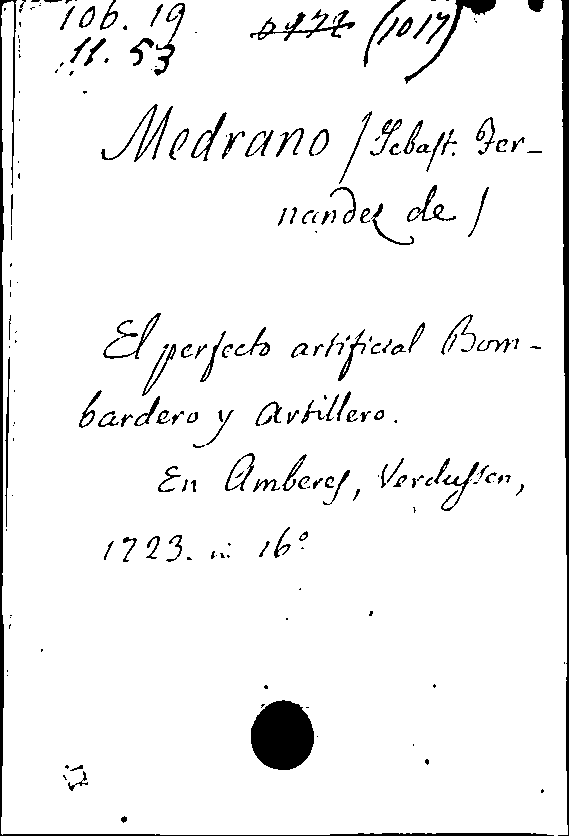 106. 19 (1017)
11. 53
Medrano / Sebast. Fer-
nandez de /
El perfecto artificial Bom-
bardero y Artillero.
En Amberes, Verdussen,
1723. in 16°